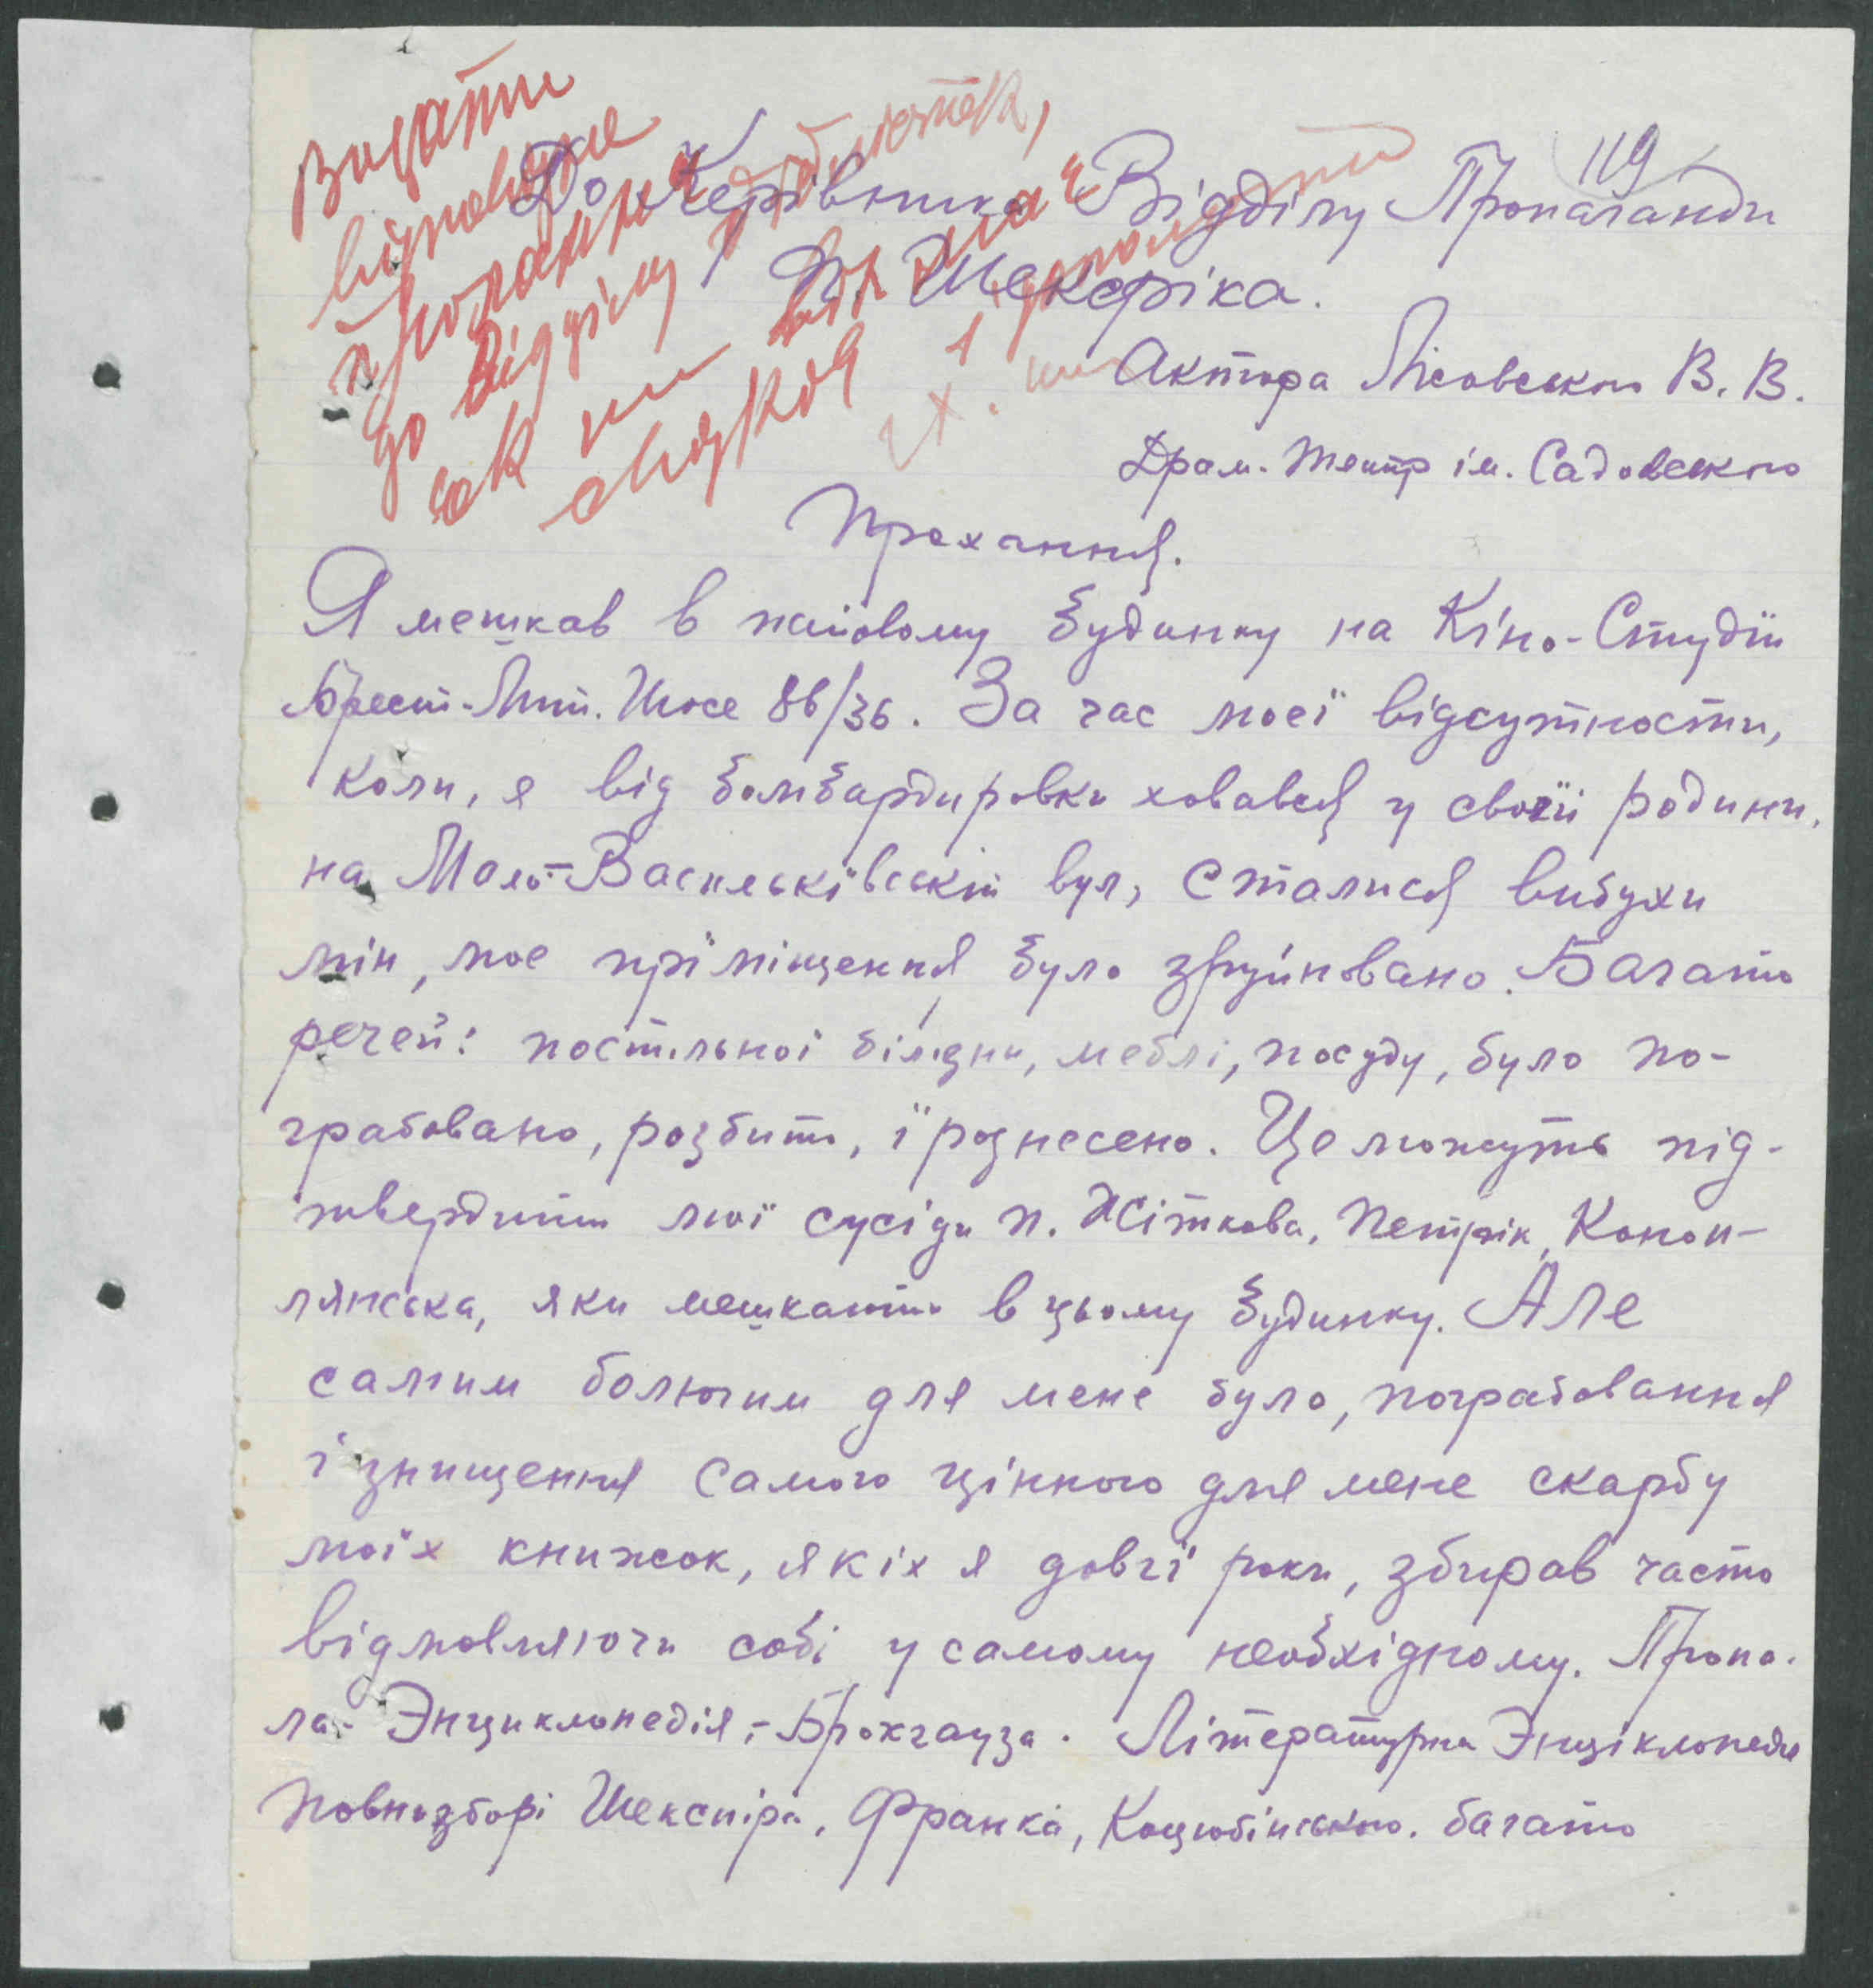 119
Видати
відповідне
прохання
до відділу бібліотек,
До Керівника Відділу Пропаганди
п. Шекеріка.
Актора Лісовського В. В.
Драм. Театр ім. Садовського
Прохання.
Я мешкав в пайовому будинку на Кіно-Студії
Брест-Лит. Шосе 86/36. За час моєї відсутности,
коли, я від бомбардировки ховався у своєй родини,
на Мало-Васильківській вул, сталися вибухи
мін, моє пріміщення було зруйновано. Багато
речей: постільної білизни, меблі, посуду, було по-
грабовано, розбито, ї рознесено. Це можуть під-
твердити мої сусіди п. Жіткова, Петрік, Коноп-
лянська, яки мешкають в цьому будинку. Але
самим болючим для мене було, пограбовання
і знищення самого цінного для мене скарбу
моїх книжок, якіх я довгі роки, збирав часто
відмовляючи собі у самому необхідному. Пропа-
ла- Энциклопедія,- Брокгауза. Літературна Энціклопедія
Повнизборі Шекспіра, Франка, Коцюбінського. багато